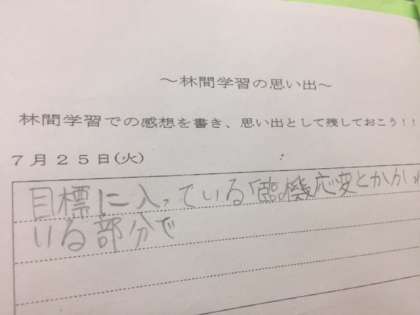 ～林間学習の思い出～
林間学習での感想を書き、思い出として残しておこう！！
７月２５日(火)
目標に入っている「臨機応変とかかい
いる部分で